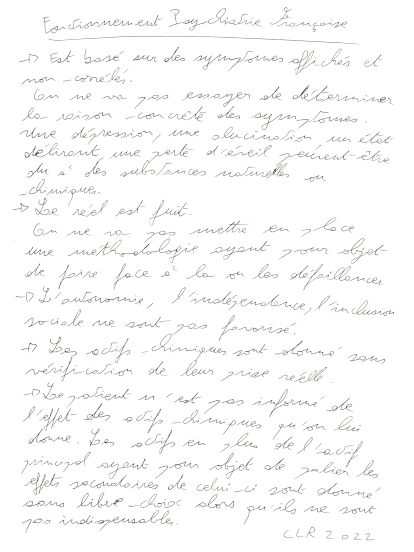 Fonctionnement Psychiatrie Française
-> Est basé sur des symptomes affichés et
non-corrélés.
On ne va pas essayer de déterminer
la raison concrète des symptomes.
Une dépression, une alucination un état
délirant, une perte d'éveil peuvent-être
du à des substances naturelles ou
chimiques.
-> Le réel est fuit.
On ne va pas mettre en place
une methodologie ayant pour objet
de faire face à la ou les défaillances
-> L'autonomie, l'indépendance, l'inclusion
sociale ne sont pas favorisé.
-> Les actifs chimiques sont donné sans
vérification de leur prise réelle.
-> Le patient n'est pas informé de
l'effet des actifs chimiques qu'on lui
donne. Les actifs en plus de l'actif
principal ayant pour objet de palier les
effets secondaires de celui-ci sont donné
sans libre-choix alors qu'ils ne sont
pas indispensables.
CLR 2022